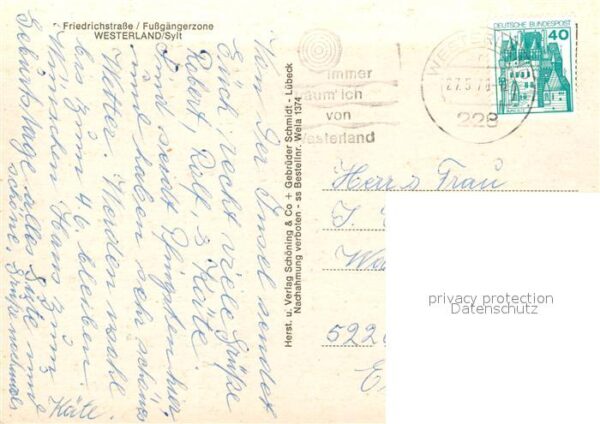 Friedrichstraße / Fußgängerzone
WESTERLAND/Sylt
Von der Insel sendet
Euch recht viele Grüße
Robert, Rolf, 3 Käte.
Sind seit Pfingsten hier,
und haben sehr schönes
Wetter. Werden wohl
bis zum 4.6. bleiben.
Wünschen Hans zum
Geburtstage alles Gute und
schöne, Grüße nochmals
Käte.
Herst. u. Verlag Schöning & Co + Gebrüder Schmidt - Lübeck
Nachahmung verboten - ss Bestellnr. Wela 1374
immer
träum' ich
von
Westerland
27.5.
228
DEUTSCHE BUNDESPOST
40
Herr u Frau
5226
privacy protection
Datenschutz